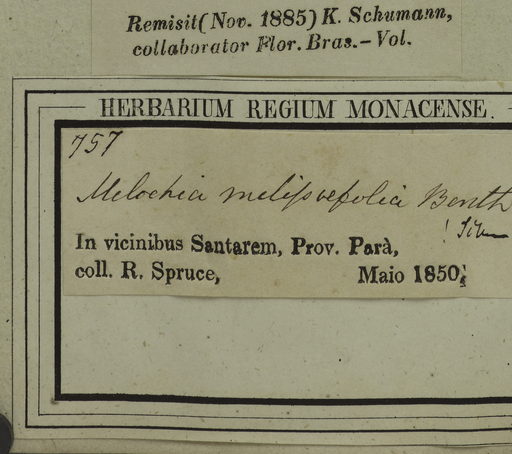 Remisit (Nov. 1885) K. Schumann,
collaborator Flor. Bras. — Vol.
HERBARIUM REGIUM MONACENSE.
757
Melochia melissaefolia Benth
In vicinibus Santarem, Prov. Parà,
coll. R. Spruce, Maio 1850.